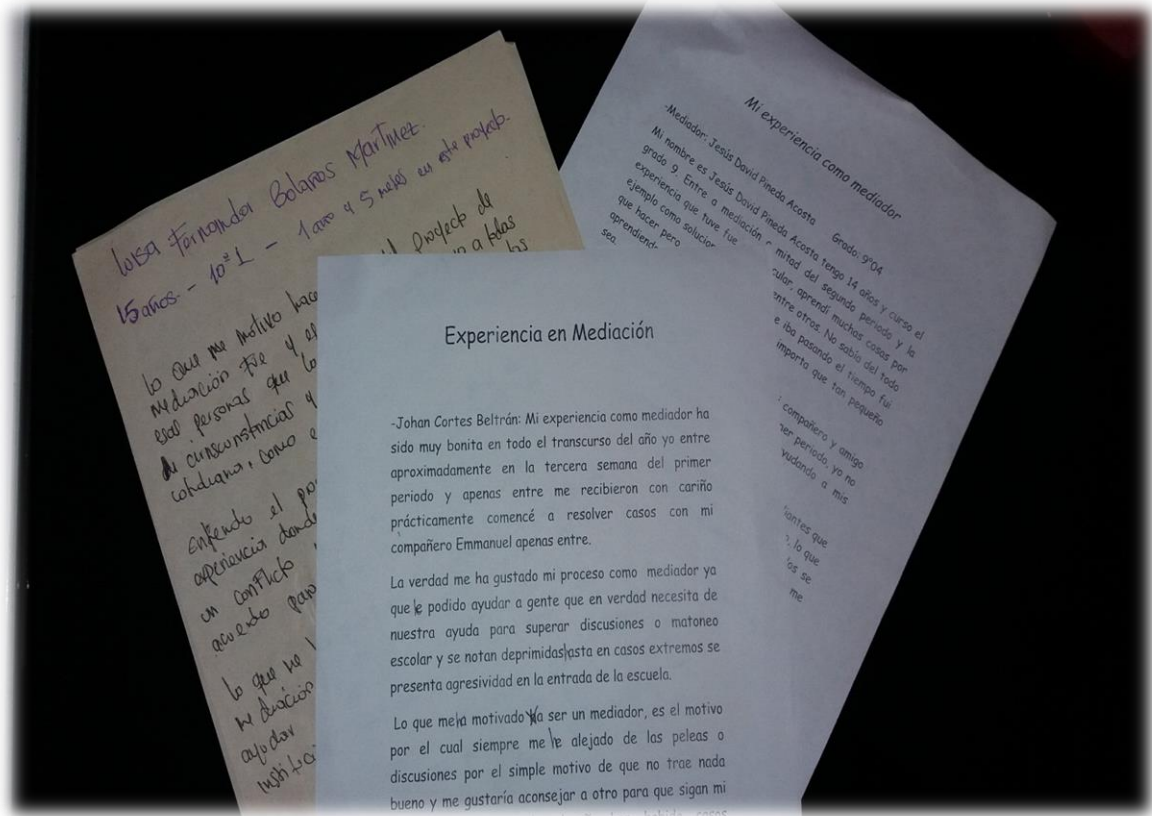 Luisa Fernanda Bolaños Martinez.
15 años. - 10º1 - 1 año y 5 meses en este proyecto.
lo que me motivo hace
el proyecto de
mediación fue y el
a todas
esas personas que lo
los
de circunstancias y
cotidiano, como e
Entiendo el pro
experiencia donde
un conflicto
acuerdo para
lo que me h
mediación
ayudar
instituci
Experiencia en Mediación
-Johan Cortes Beltrán: Mi experiencia como mediador ha
sido muy bonita en todo el transcurso del año yo entre
aproximadamente en la tercera semana del primer
periodo y apenas entre me recibieron con cariño
prácticamente comencé a resolver casos con mi
compañero Emmanuel apenas entre.
La verdad me ha gustado mi proceso como mediador ya
que he podido ayudar a gente que en verdad necesita de
nuestra ayuda para superar discusiones o matoneo
escolar y se notan deprimidas hasta en casos extremos se
presenta agresividad en la entrada de la escuela.
Lo que me ha motivado a ser un mediador, es el motivo
por el cual siempre me he alejado de las peleas o
discusiones por el simple motivo de que no trae nada
bueno y me gustaría aconsejar a otro para que sigan mi
Mi experiencia como mediador
-Mediador: Jesús David Pineda Acosta Grado: 9º04
Mi nombre es Jesús David Pineda Acosta tengo 14 años y curso el
grado 9. Entre a mediación a mitad del segundo periodo y la
experiencia que tuve fue cular, aprendí muchas cosas por
ejemplo como solucion entre otros. No sabía del todo
que hacer pero e iba pasando el tiempo fui
aprendiendo importa que tan pequeño
sea
compañero y amigo
mer periodo, yo no
yudando a mis
iantes que
, lo que
os se
me